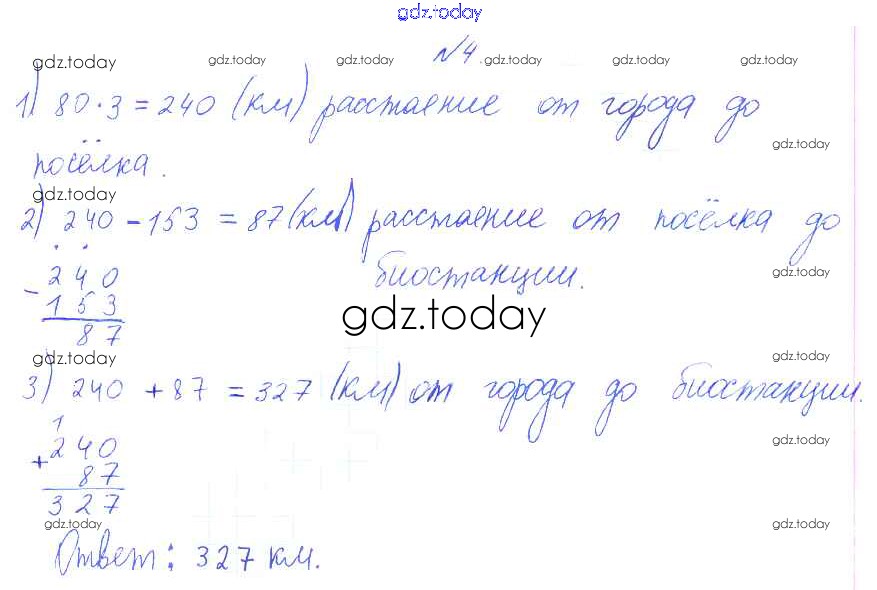 gdz.today
№4.
gdz.today gdz.today gdz.today gdz.today gdz.today gdz.today
1) 80·3 = 240 (км) расстояние от города до
gdz.today
посёлка.
gdz.today
2) 240 - 153 = 87 (км) расстояние от посёлка до
биостанции.
gdz.today
- 240
153
87
gdz.today
gdz.today gdz.today
3) 240 + 87 = 327 (км) от города до биостанции.
1
+ 240
87
327
gdz.today
gdz.today gdz.today
Ответ: 327 км.